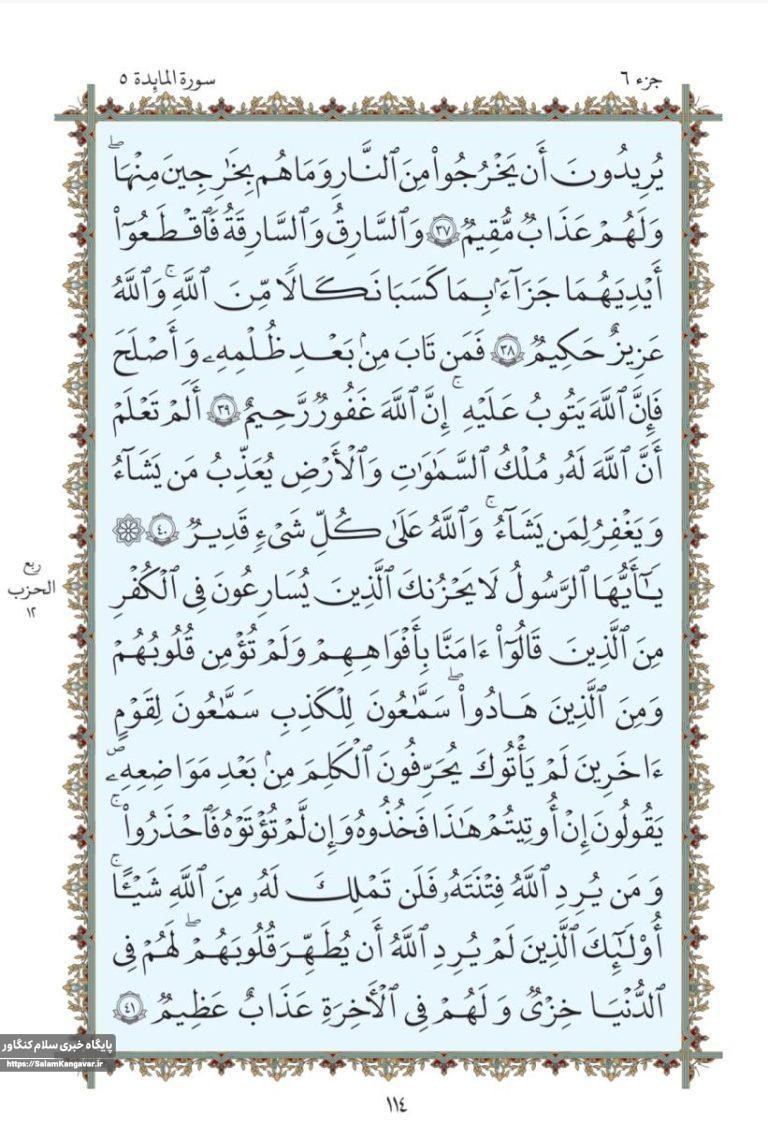 جزء ٦
سورة المایدة ٥
يُرِيدُونَ أَن يَخْرُجُواْ مِنَ ٱلنَّارِ وَمَا هُم بِخَٰرِجِينَ مِنْهَاۖ
وَلَهُمْ عَذَابٌ مُّقِيمٌ ٣٧ وَٱلسَّارِقُ وَٱلسَّارِقَةُ فَٱقْطَعُوٓاْ
أَيْدِيَهُمَا جَزَآءَۢ بِمَا كَسَبَا نَكَٰلًا مِّنَ ٱللَّهِۗ وَٱللَّهُ
عَزِيزٌ حَكِيمٌ ٣٨ فَمَن تَابَ مِنۢ بَعْدِ ظُلْمِهِۦ وَأَصْلَحَ
فَإِنَّ ٱللَّهَ يَتُوبُ عَلَيْهِۗ إِنَّ ٱللَّهَ غَفُورٌ رَّحِيمٌ ٣٩ أَلَمْ تَعْلَمْ
أَنَّ ٱللَّهَ لَهُۥ مُلْكُ ٱلسَّمَٰوَٰتِ وَٱلْأَرْضِ يُعَذِّبُ مَن يَشَآءُ
وَيَغْفِرُ لِمَن يَشَآءُۗ وَٱللَّهُ عَلَىٰ كُلِّ شَىْءٍ قَدِيرٌ ٤٠
يَٰٓأَيُّهَا ٱلرَّسُولُ لَا يَحْزُنكَ ٱلَّذِينَ يُسَٰرِعُونَ فِى ٱلْكُفْرِ
مِنَ ٱلَّذِينَ قَالُوٓاْ ءَامَنَّا بِأَفْوَٰهِهِمْ وَلَمْ تُؤْمِن قُلُوبُهُمْ
وَمِنَ ٱلَّذِينَ هَادُواْۖ سَمَّٰعُونَ لِلْكَذِبِ سَمَّٰعُونَ لِقَوْمٍ
ءَاخَرِينَ لَمْ يَأْتُوكَ يُحَرِّفُونَ ٱلْكَلِمَ مِنۢ بَعْدِ مَوَاضِعِهِۦۖ
يَقُولُونَ إِنْ أُوتِيتُمْ هَٰذَا فَخُذُوهُ وَإِن لَّمْ تُؤْتَوْهُ فَٱحْذَرُواْۚ
وَمَن يُرِدِ ٱللَّهُ فِتْنَتَهُۥ فَلَن تَمْلِكَ لَهُۥ مِنَ ٱللَّهِ شَيْـًٔاۚ
أُوْلَٰٓئِكَ ٱلَّذِينَ لَمْ يُرِدِ ٱللَّهُ أَن يُطَهِّرَ قُلُوبَهُمْۖ لَهُمْ فِى
ٱلدُّنْيَا خِزْىٌ وَلَهُمْ فِى ٱلْأٓخِرَةِ عَذَابٌ عَظِيمٌ ٤١
ربع
الحزب
١٢
پایگاه خبری سلام کنگاور
https://SalamKangavar.ir
١١٤